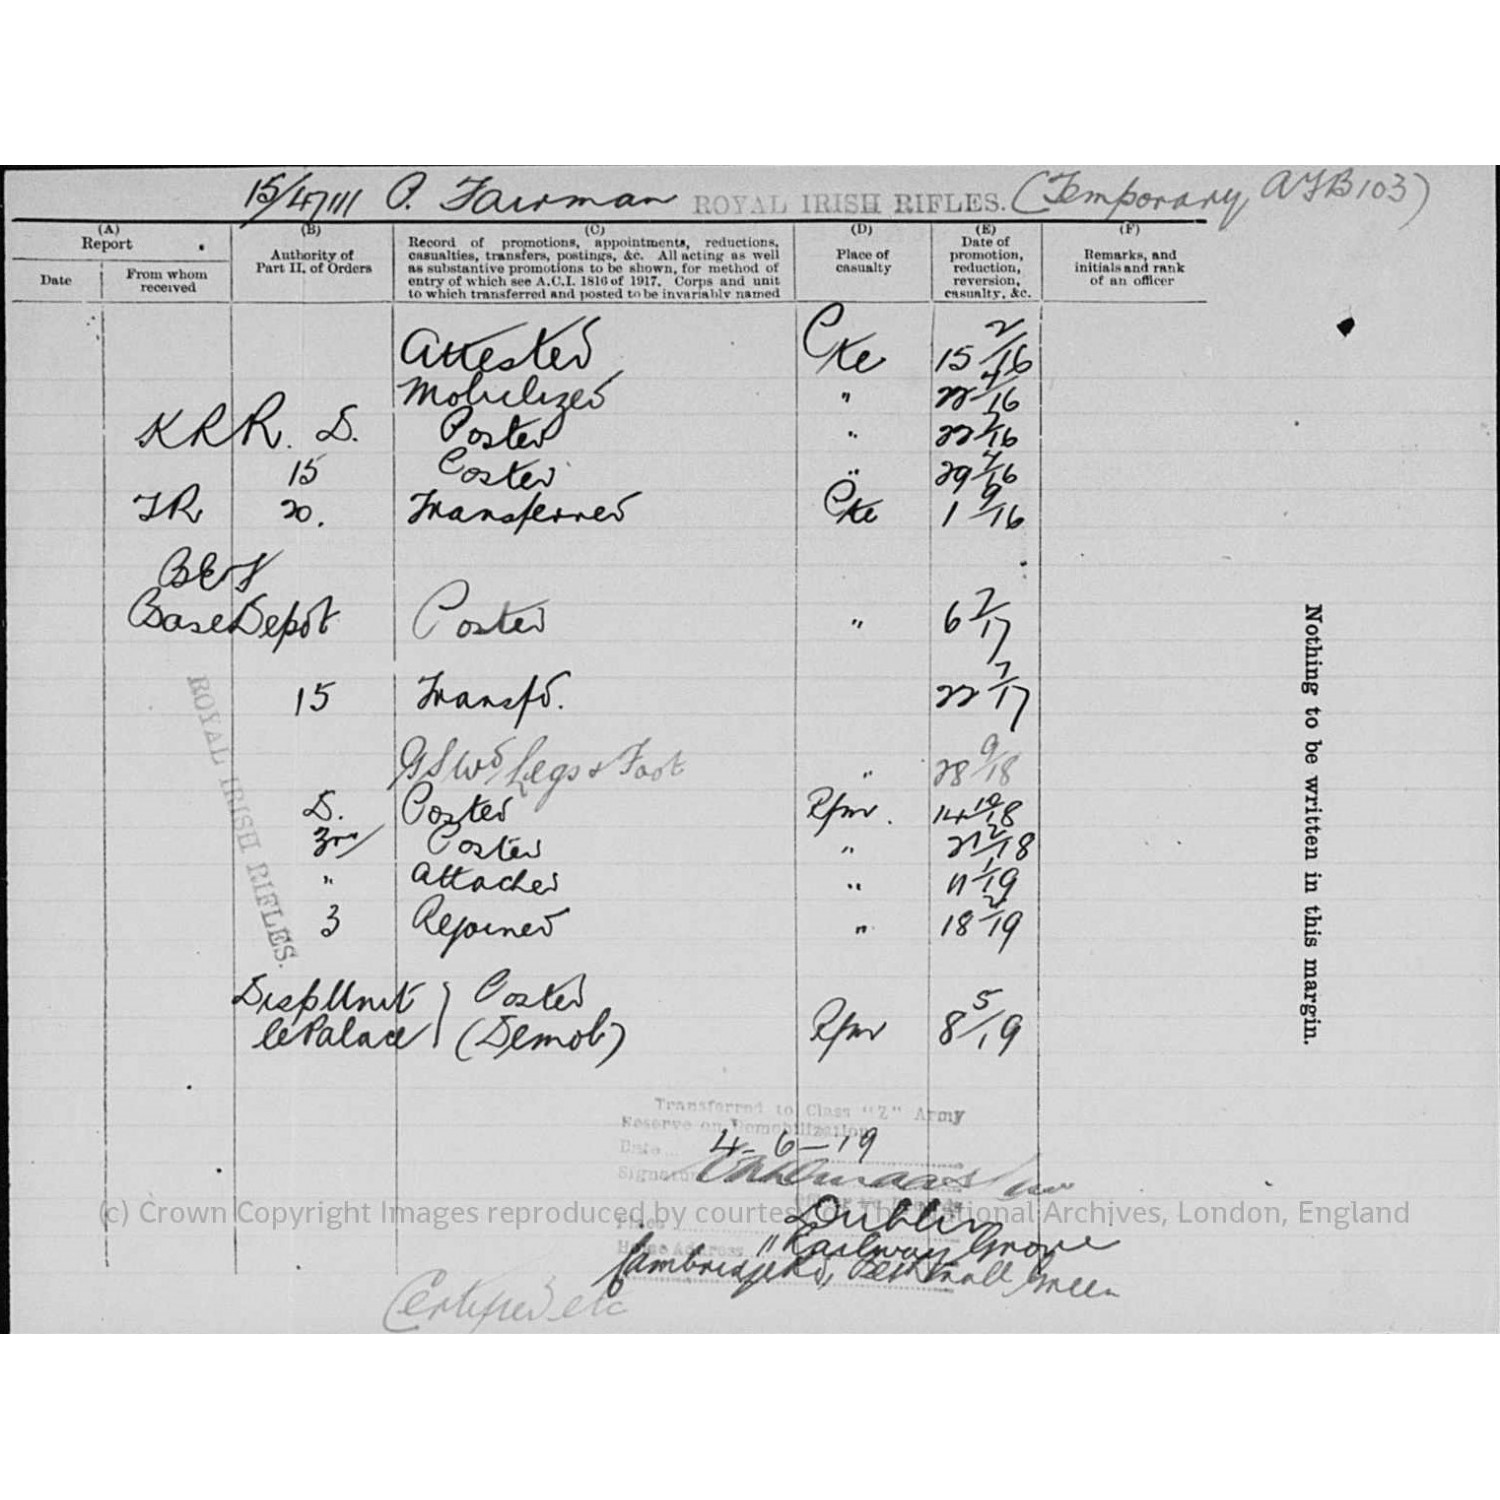 15/47111 P. Fairman ROYAL IRISH RIFLES. (Temporary AFB103)
(A) Report
Date
From whom received
(B) Authority of Part II. of Orders
(C) Record of promotions, appointments, reductions, casualties, transfers, postings, &c. All acting as well as substantive promotions to be shown, for method of entry of which see A.C.I. 1816 of 1917. Corps and unit to which transferred and posted to be invariably named
(D) Place of casualty
(E) Date of promotion, reduction, reversion, casualty, &c.
(F) Remarks, and initials and rank of an officer
Attested Pte 15 2/16
Mobilized "
KRR. D. Posted "
15 Posted " 29 7/16
TR 20. Transferred Pte 1 9/16
BEF
Base Depot Posted " 6 7/17
15 Transfd. 22 7/17
GSWd Legs & Foot " 28 9/18
D. Posted Rfmr. 14 10/18
3rd Posted "
" Attached " 11 1/19
3 Rejoined " 18 2/19
DispUnit } Posted
CPalace (Demob) Rfmr 8 5/19
ROYAL IRISH RIFLES.
Nothing to be written in this margin.
Transferred to Class "Z" Army
Reserve on Demobilization
Date 4-6-19
Signature
Place Dublin
Home Address 11 Railway Grove
Cambridge Rd, Bethnall Green
(c) Crown Copyright Images reproduced by courtesy of The National Archives, London, England
Certified etc